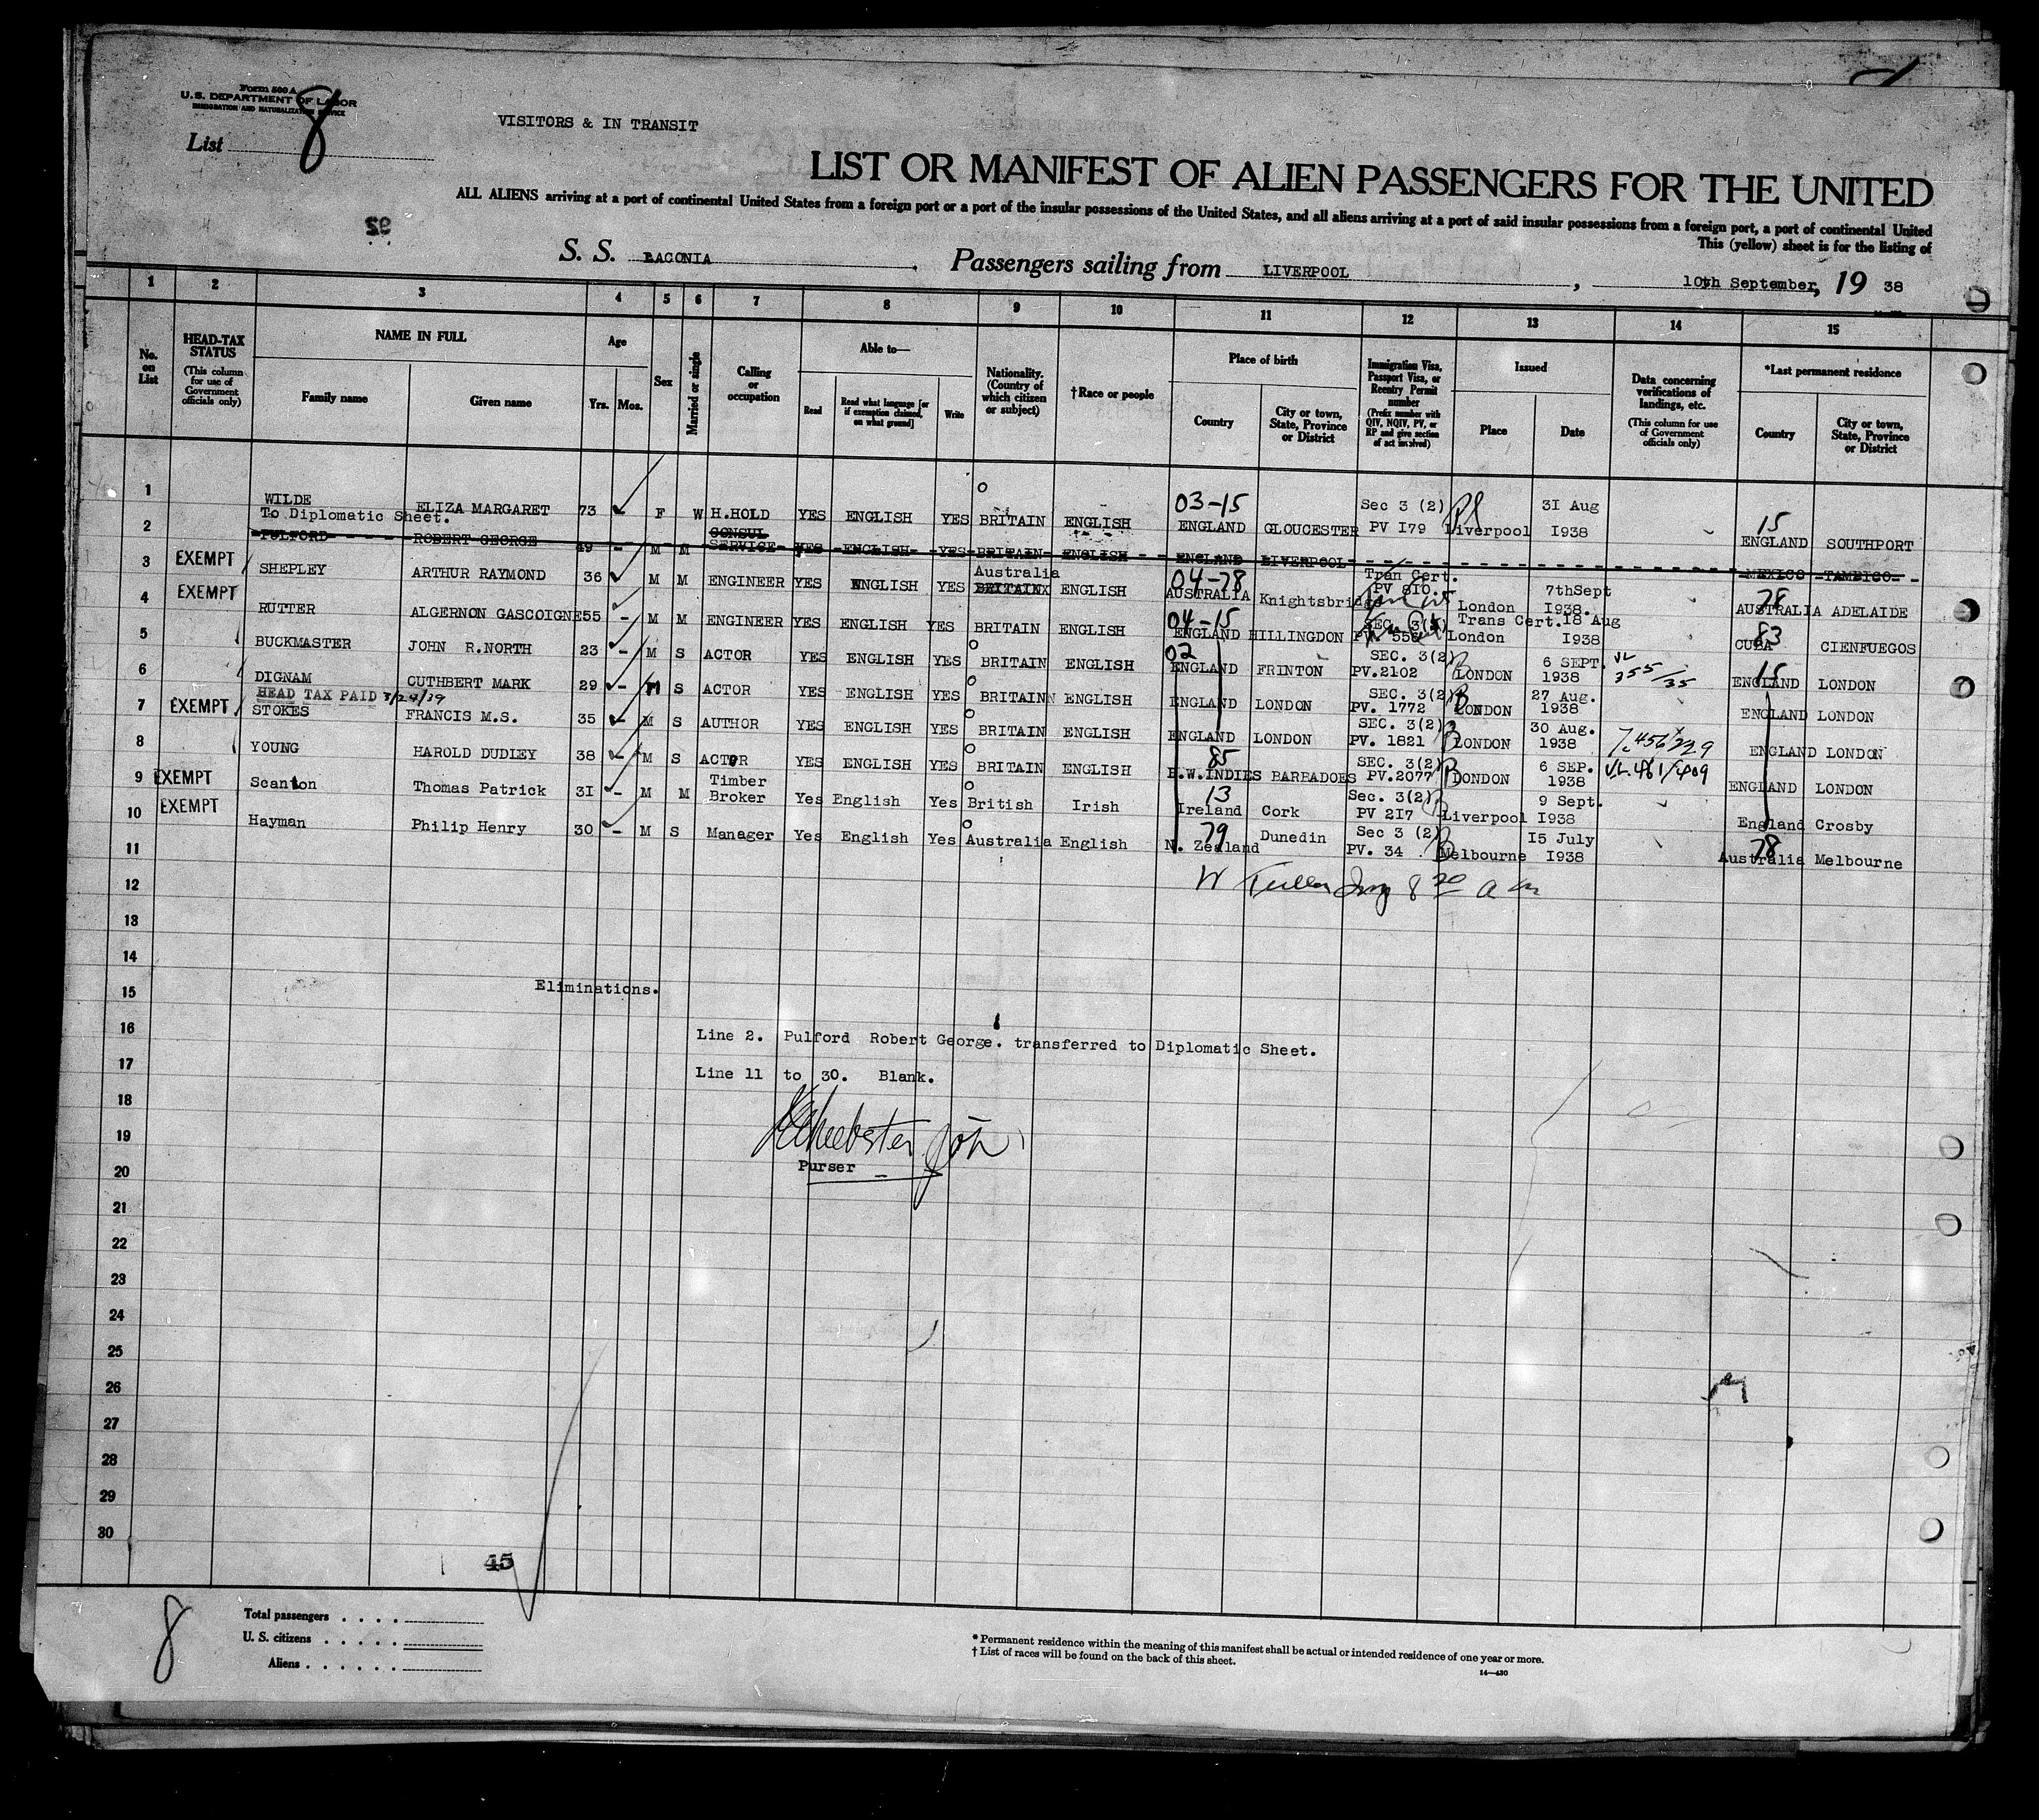 Form 500 A
U.S. DEPARTMENT OF LABOR
IMMIGRATION AND NATURALIZATION SERVICE
List 8
VISITORS & IN TRANSIT
LIST OR MANIFEST OF ALIEN PASSENGERS FOR THE UNITED
ALL ALIENS arriving at a port of continental United States from a foreign port or a port of the insular possessions of the United States, and all aliens arriving at a port of said insular possessions from a foreign port, a port of continental United
This (yellow) sheet is for the listing of
92
S. S. LACONIA, Passengers sailing from LIVERPOOL, 10th September, 19 38
1 2 3 4 5 6 7 8 9 10 11 12 13 14 15
No. on List
HEAD-TAX STATUS
(This column for use of Government officials only)
NAME IN FULL
Family name
Given name
Age
Yrs. Mos.
Sex
Married or single
Calling or occupation
Able to—
Read
Read what language [or if exemption claimed, on what ground]
Write
Nationality. (Country of which citizen or subject)
†Race or people
Place of birth
Country
City or town, State, Province or District
Immigration Visa, Passport Visa, or Reentry Permit number
(Prefix number with QIV, NQIV, PV, or RP and give section of act involved)
Issued
Place
Date
Data concerning verifications of landings, etc.
(This column for use of Government officials only)
*Last permanent residence
Country
City or town, State, Province or District
1 WILDE ELIZA MARGARET 73 F W H.HOLD YES ENGLISH YES BRITAIN ENGLISH 03-15 ENGLAND GLOUCESTER Sec 3 (2) PV I79 Liverpool 3I Aug I938 15 ENGLAND SOUTHPORT
To Diplomatic Sheet.
2 PULFORD ROBERT GEORGE 49 - M M CONSUL SERVICE YES ENGLISH YES BRITAIN ENGLISH ENGLAND LIVERPOOL MEXICO TAMPICO
3 EXEMPT SHEPLEY ARTHUR RAYMOND 36 M M ENGINEER YES ENGLISH YES Australia BRITAINX ENGLISH 04-78 AUSTRALIA Knightsbridge Tran Cert. PV 810. London 7thSept I938. 78 AUSTRALIA ADELAIDE
4 EXEMPT RUTTER ALGERNON GASCOIGNE 55 - M M ENGINEER YES ENGLISH YES BRITAIN ENGLISH 04-15 ENGLAND HILLINGDON SEC. 3(3) PV 556 Trans Cert. London 18 Aug I938 83 CUBA CIENFUEGOS
5 BUCKMASTER JOHN R.NORTH 23 - M S ACTOR YES ENGLISH YES BRITAIN ENGLISH 02 ENGLAND FRINTON SEC. 3(2) PV.2102 LONDON 6 SEPT. 1938 VL 355/35 15 ENGLAND LONDON
6 DIGNAM CUTHBERT MARK 29 - M S ACTOR YES ENGLISH YES BRITAIN ENGLISH ENGLAND LONDON SEC. 3(2) PV. 1772 LONDON 27 Aug. 1938 ENGLAND LONDON
HEAD TAX PAID 3/24/39
7 EXEMPT STOKES FRANCIS M.S. 35 - M S AUTHOR YES ENGLISH YES BRITAIN ENGLISH ENGLAND LONDON SEC. 3(2) PV. 1821 LONDON 30 Aug. 1938 ENGLAND LONDON
8 YOUNG HAROLD DUDLEY 38 - M S ACTOR YES ENGLISH YES BRITAIN ENGLISH 85 B.W.INDIES BARBADOES SEC. 3(2) PV.2077 LONDON 6 SEP. 1938 ENGLAND LONDON
9 EXEMPT Scanlon Thomas Patrick 3I - M M Timber Broker Yes English Yes British Irish 13 Ireland Cork Sec. 3(2) PV 2I7 Liverpool 9 Sept. I938 England Crosby
10 EXEMPT Hayman Philip Henry 30 - M S Manager Yes English Yes Australia English 79 N. Zealand Dunedin Sec 3 (2) PV. 34 Melbourne I5 July I938 78 Australia Melbourne
11
12
13
14
15
Eliminations.
16
Line 2. Pulford Robert George. transferred to Diplomatic Sheet.
17
Line 11 to 30. Blank.
18
19
20
Purser
21
22
23
24
25
26
27
28
29
30
45
8
Total passengers
U. S. citizens
Aliens
* Permanent residence within the meaning of this manifest shall be actual or intended residence of one year or more.
† List of races will be found on the back of this sheet.
14—430